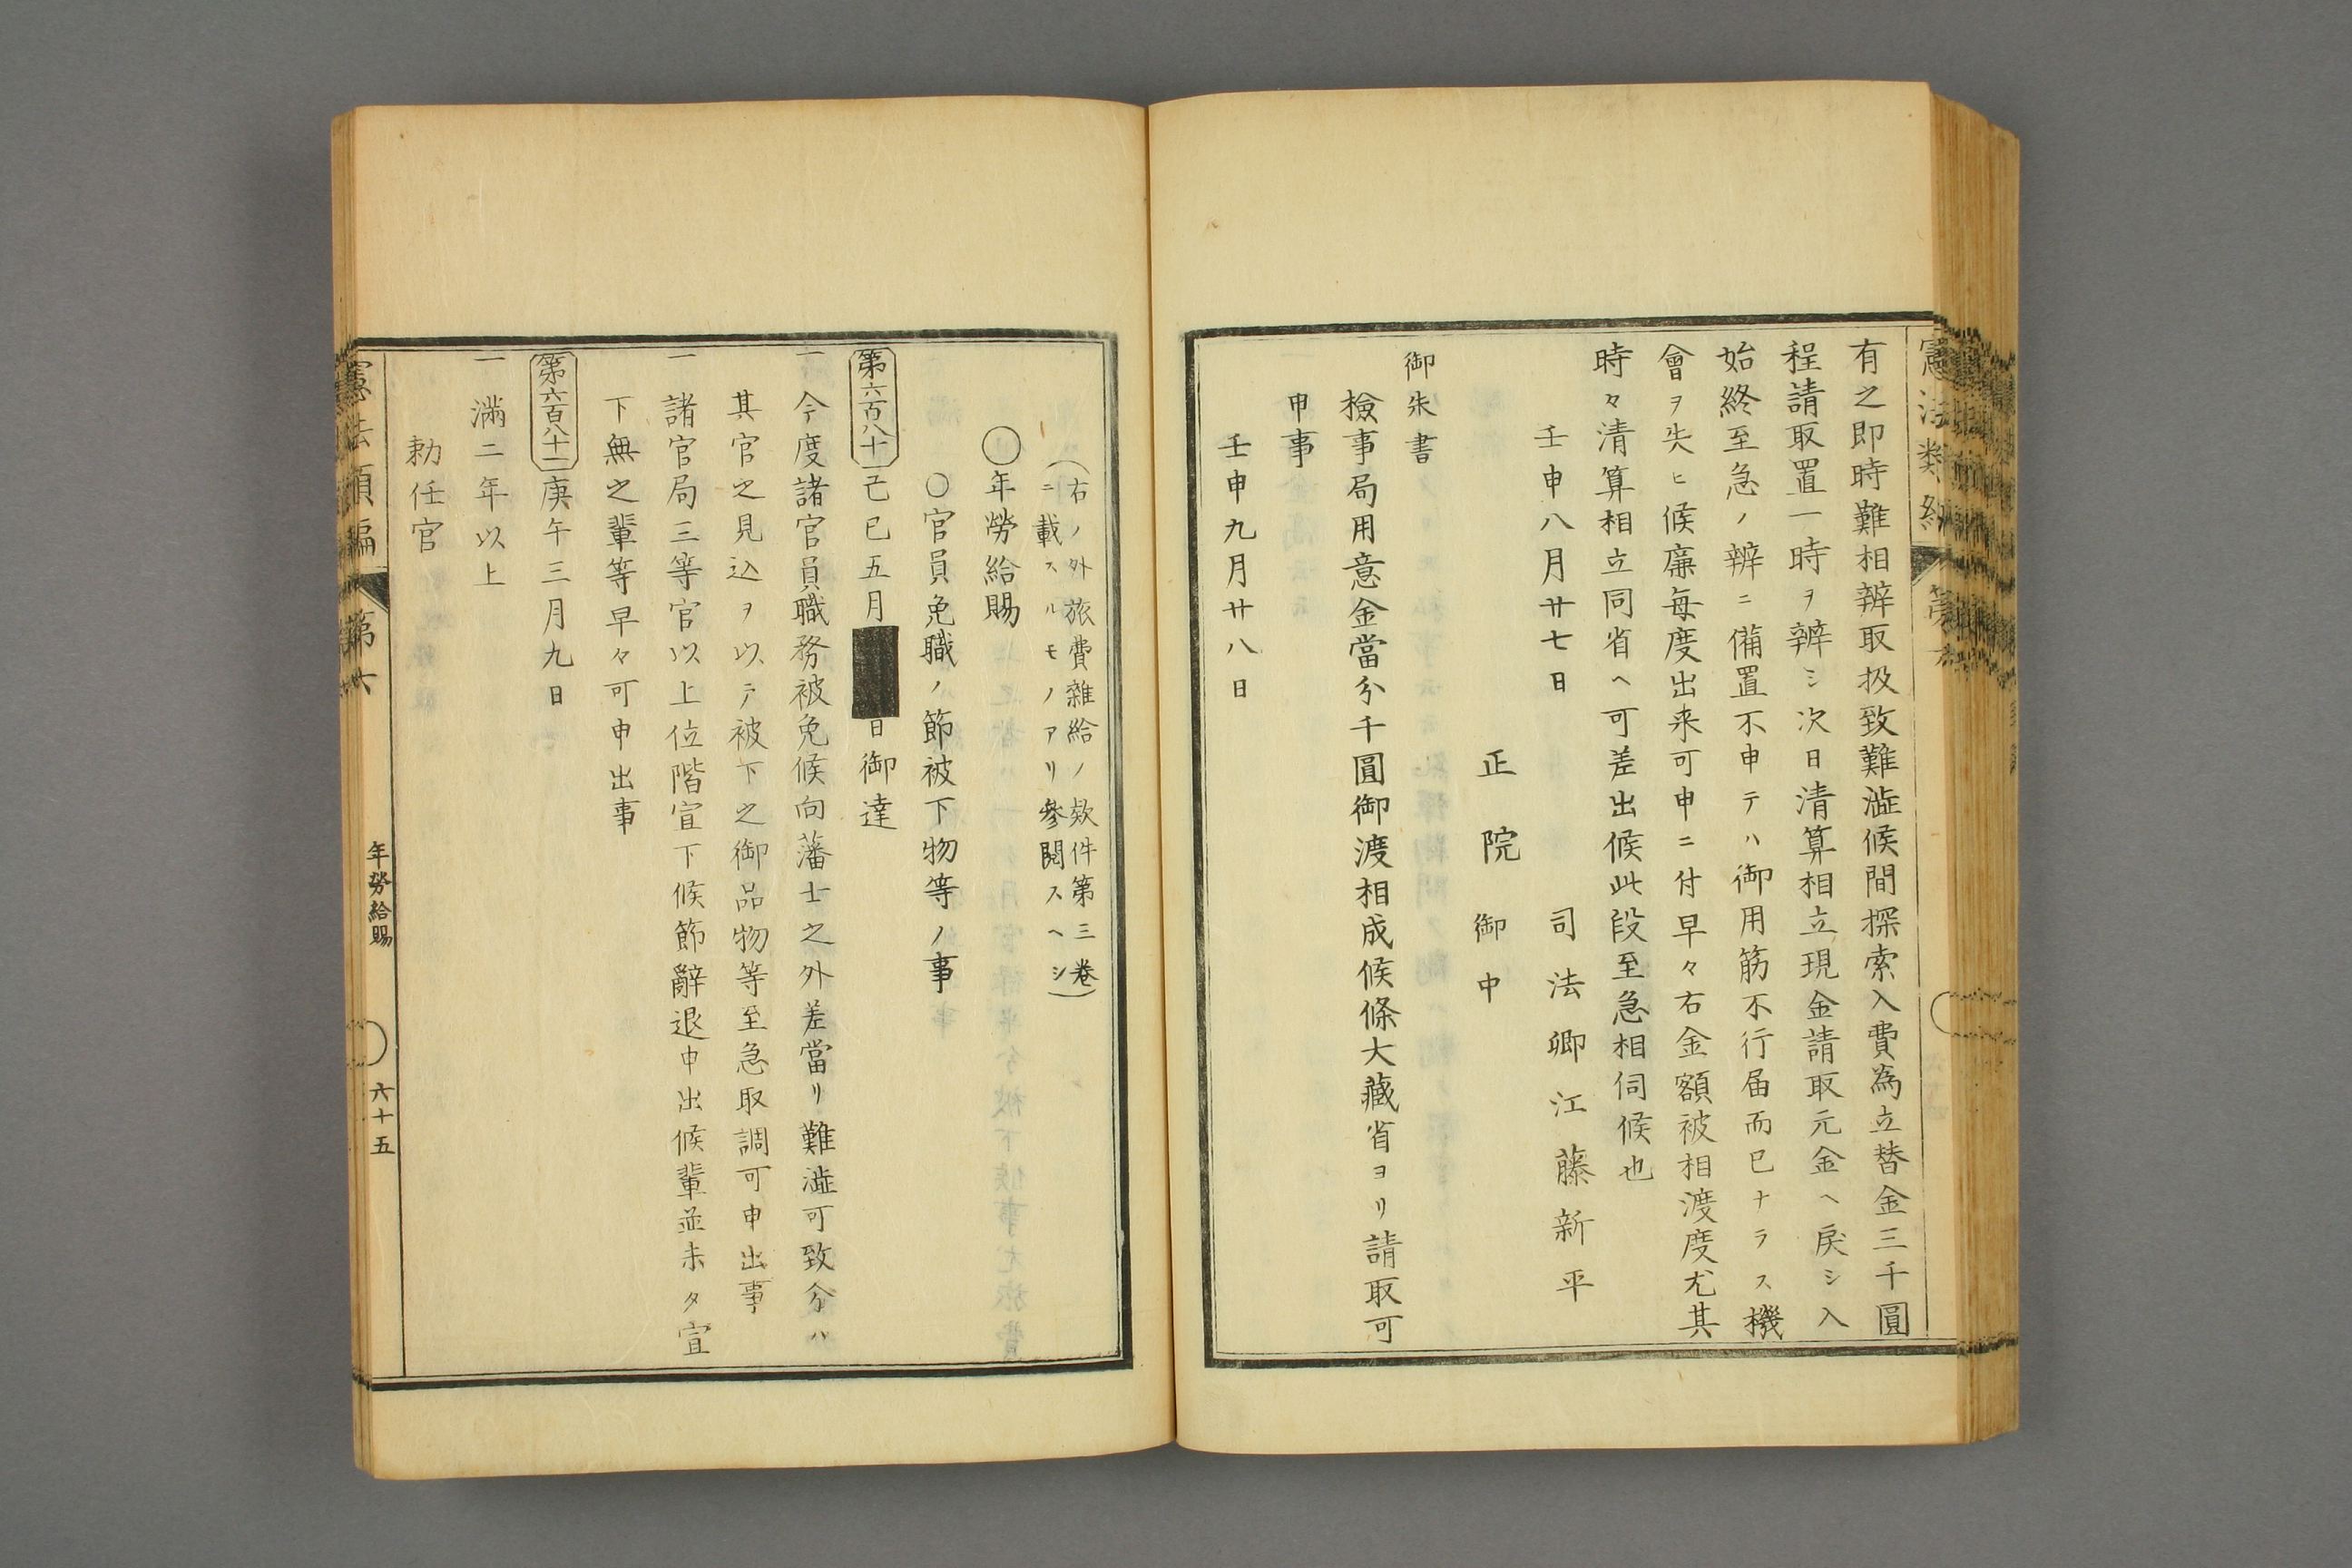 有之即時難相辨取扱致難澁候間探索入費為立替金三千圓
程請取置一時ヲ辨シ次日清算相立現金請取元金ヘ戻シ入
始終至急ノ辨ニ備置不申テハ御用筋不行届而已ナラス機
會ヲ失ヒ候廉毎度出来可申ニ付早々右金額被相渡度尤其
時々清算相立同省ヘ可差出候此段至急相伺候也
壬申八月廿七日　司法卿江藤新平
正院　御中
御朱書
檢事局用意金當分千圓御渡相成候條大藏省ヨリ請取可
申事
壬申九月廿八日
（右ノ外旅費雜給ノ欵件第三卷
ニ載スルモノアリ參閲スヘシ）
◯年勞給賜
○官員免職ノ節被下物等ノ事
第六百八十　己巳五月　日御達
一今度諸官員職務被免候向藩士之外差當リ難澁可致分ハ
其官之見込ヲ以テ被下之御品物等至急取調可申出事
一諸官局三等官以上位階宣下候節辭退申出候輩並未タ宣
下無之輩等早々可申出事
第六百八十一　庚午三月九日
一滿二年以上
勅任官
憲法類編　第六　年勞給賜　六十五